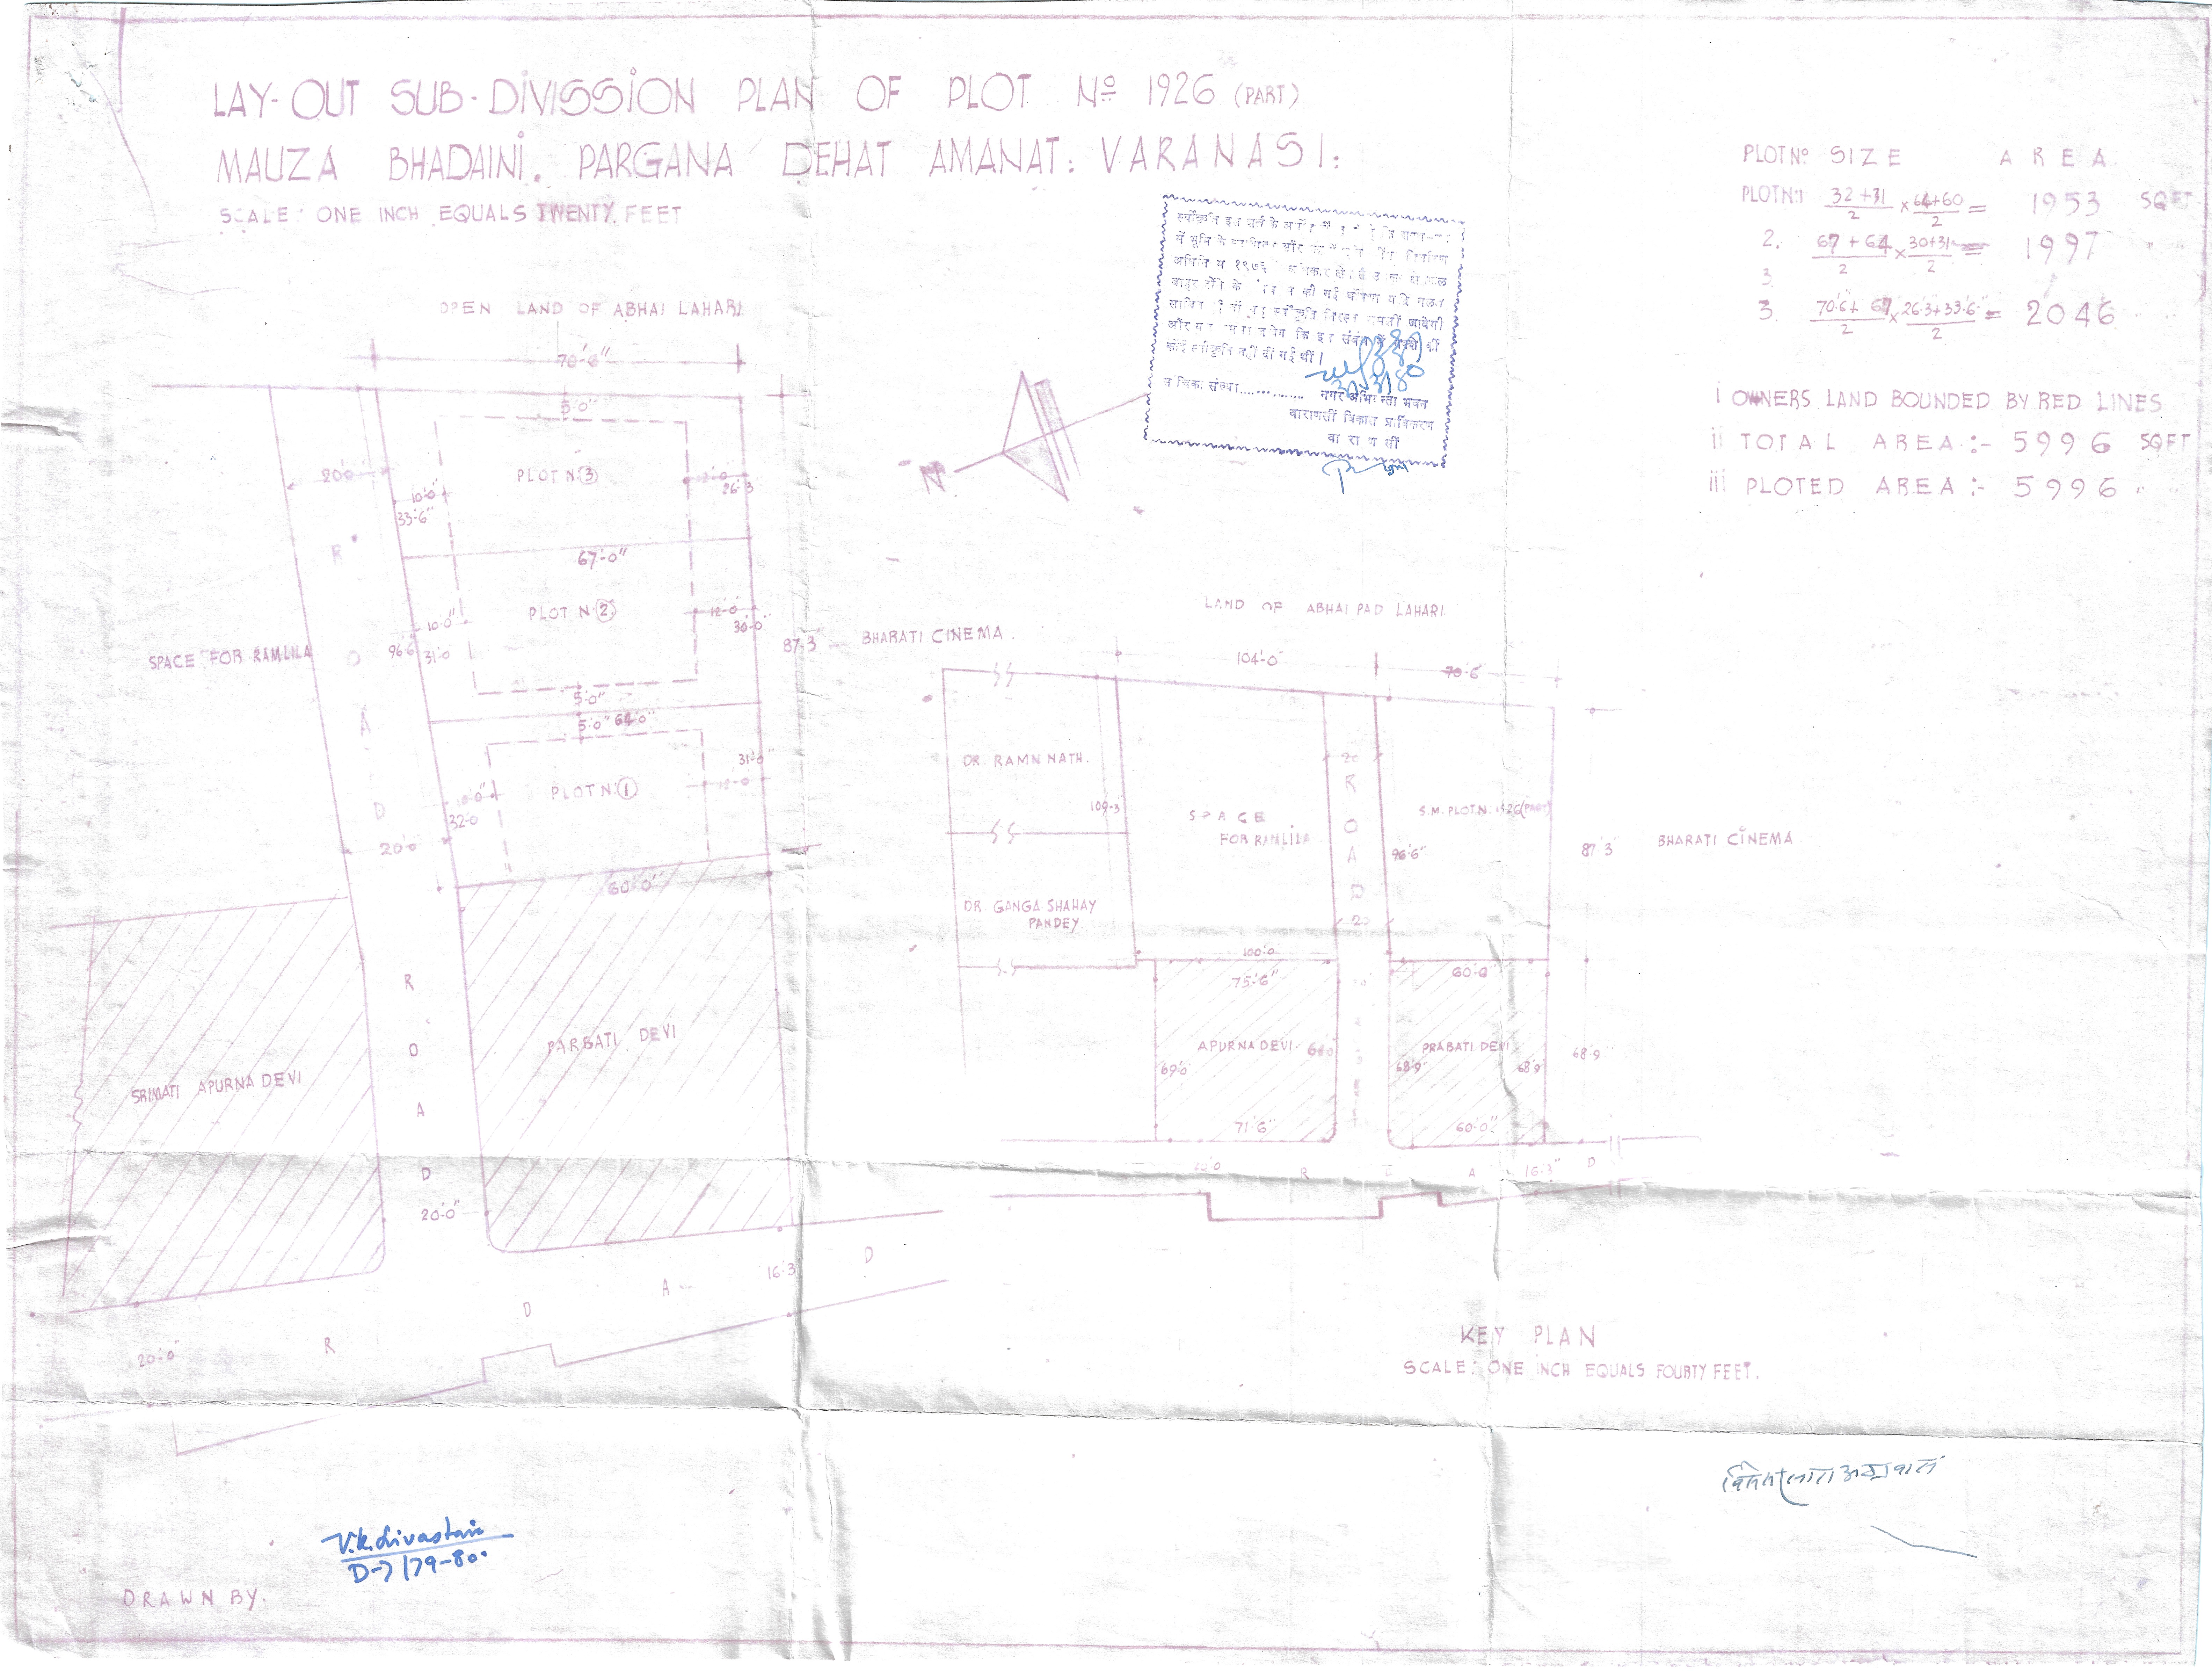 LAY-OUT SUB-DIVISSION PLAN OF PLOT Nº 1926 (PART)
MAUZA BHADAINI. PARGANA DEHAT AMANAT: VARANASI:
SCALE: ONE INCH EQUALS TWENTY FEET
PLOT Nº SIZE AREA
PLOT N:1 32+31/2 × 64+60/2 = 1953 SQFT
2. 67+64/2 × 30+31/2 = 1997 " "
3
3. 70.6+67/2 × 26.3+33.6/2 = 2046 " "
i OWNERS LAND BOUNDED BY RED LINES
ii TOTAL AREA:- 5996 SQFT
iii PLOTED AREA:- 5996 " "
में भूमि के
कोई स्वीकृति नहीं दी गई थी।
नगर अभियन्ता भवन
वाराणसी विकास प्राधिकरण
वाराणसी
N
OPEN LAND OF ABHAI LAHARI
70'-6"
5'-0"
PLOT N:③
20'-0"
10'-0"
33'-6"
12'-0"
26'-3
67'-0"
PLOT N:②
10'-0"
31'-0
96'-6"
12'-0
30'-0
87'-3
BHARATI CINEMA.
SPACE FOR RAMLILA
5'-0"
5'-0" 64'-0"
PLOT N:①
10'-0"
32'-0
31'-0
12'-0
20'-0
60'-0"
R O A D
R O A D
SRIMATI APURNA DEVI
PARBATI DEVI
20'-0"
16'-3
20'-0
R O A D
LAND OF ABHAI PAD LAHARI
104'-0"
70'-6
DR. RAMN NATH.
109'-3
SPACE
FOR RAMLILA
20
R O A D
20
S.M. PLOT N. 1926 (PART)
96'-6"
87'3
BHARATI CINEMA
DR. GANGA SHAHAY
PANDEY.
100'-0
75'-6"
60'-0"
APURNA DEVI
PRABATI DEVI
69'-0
68'-9"
68'9"
68'-9"
71'-6"
60'-0"
R O A D
16'-3"
KEY PLAN
SCALE: ONE INCH EQUALS FOURTY FEET.
V.K. Srivastav
D-7/79-80.
DRAWN BY.